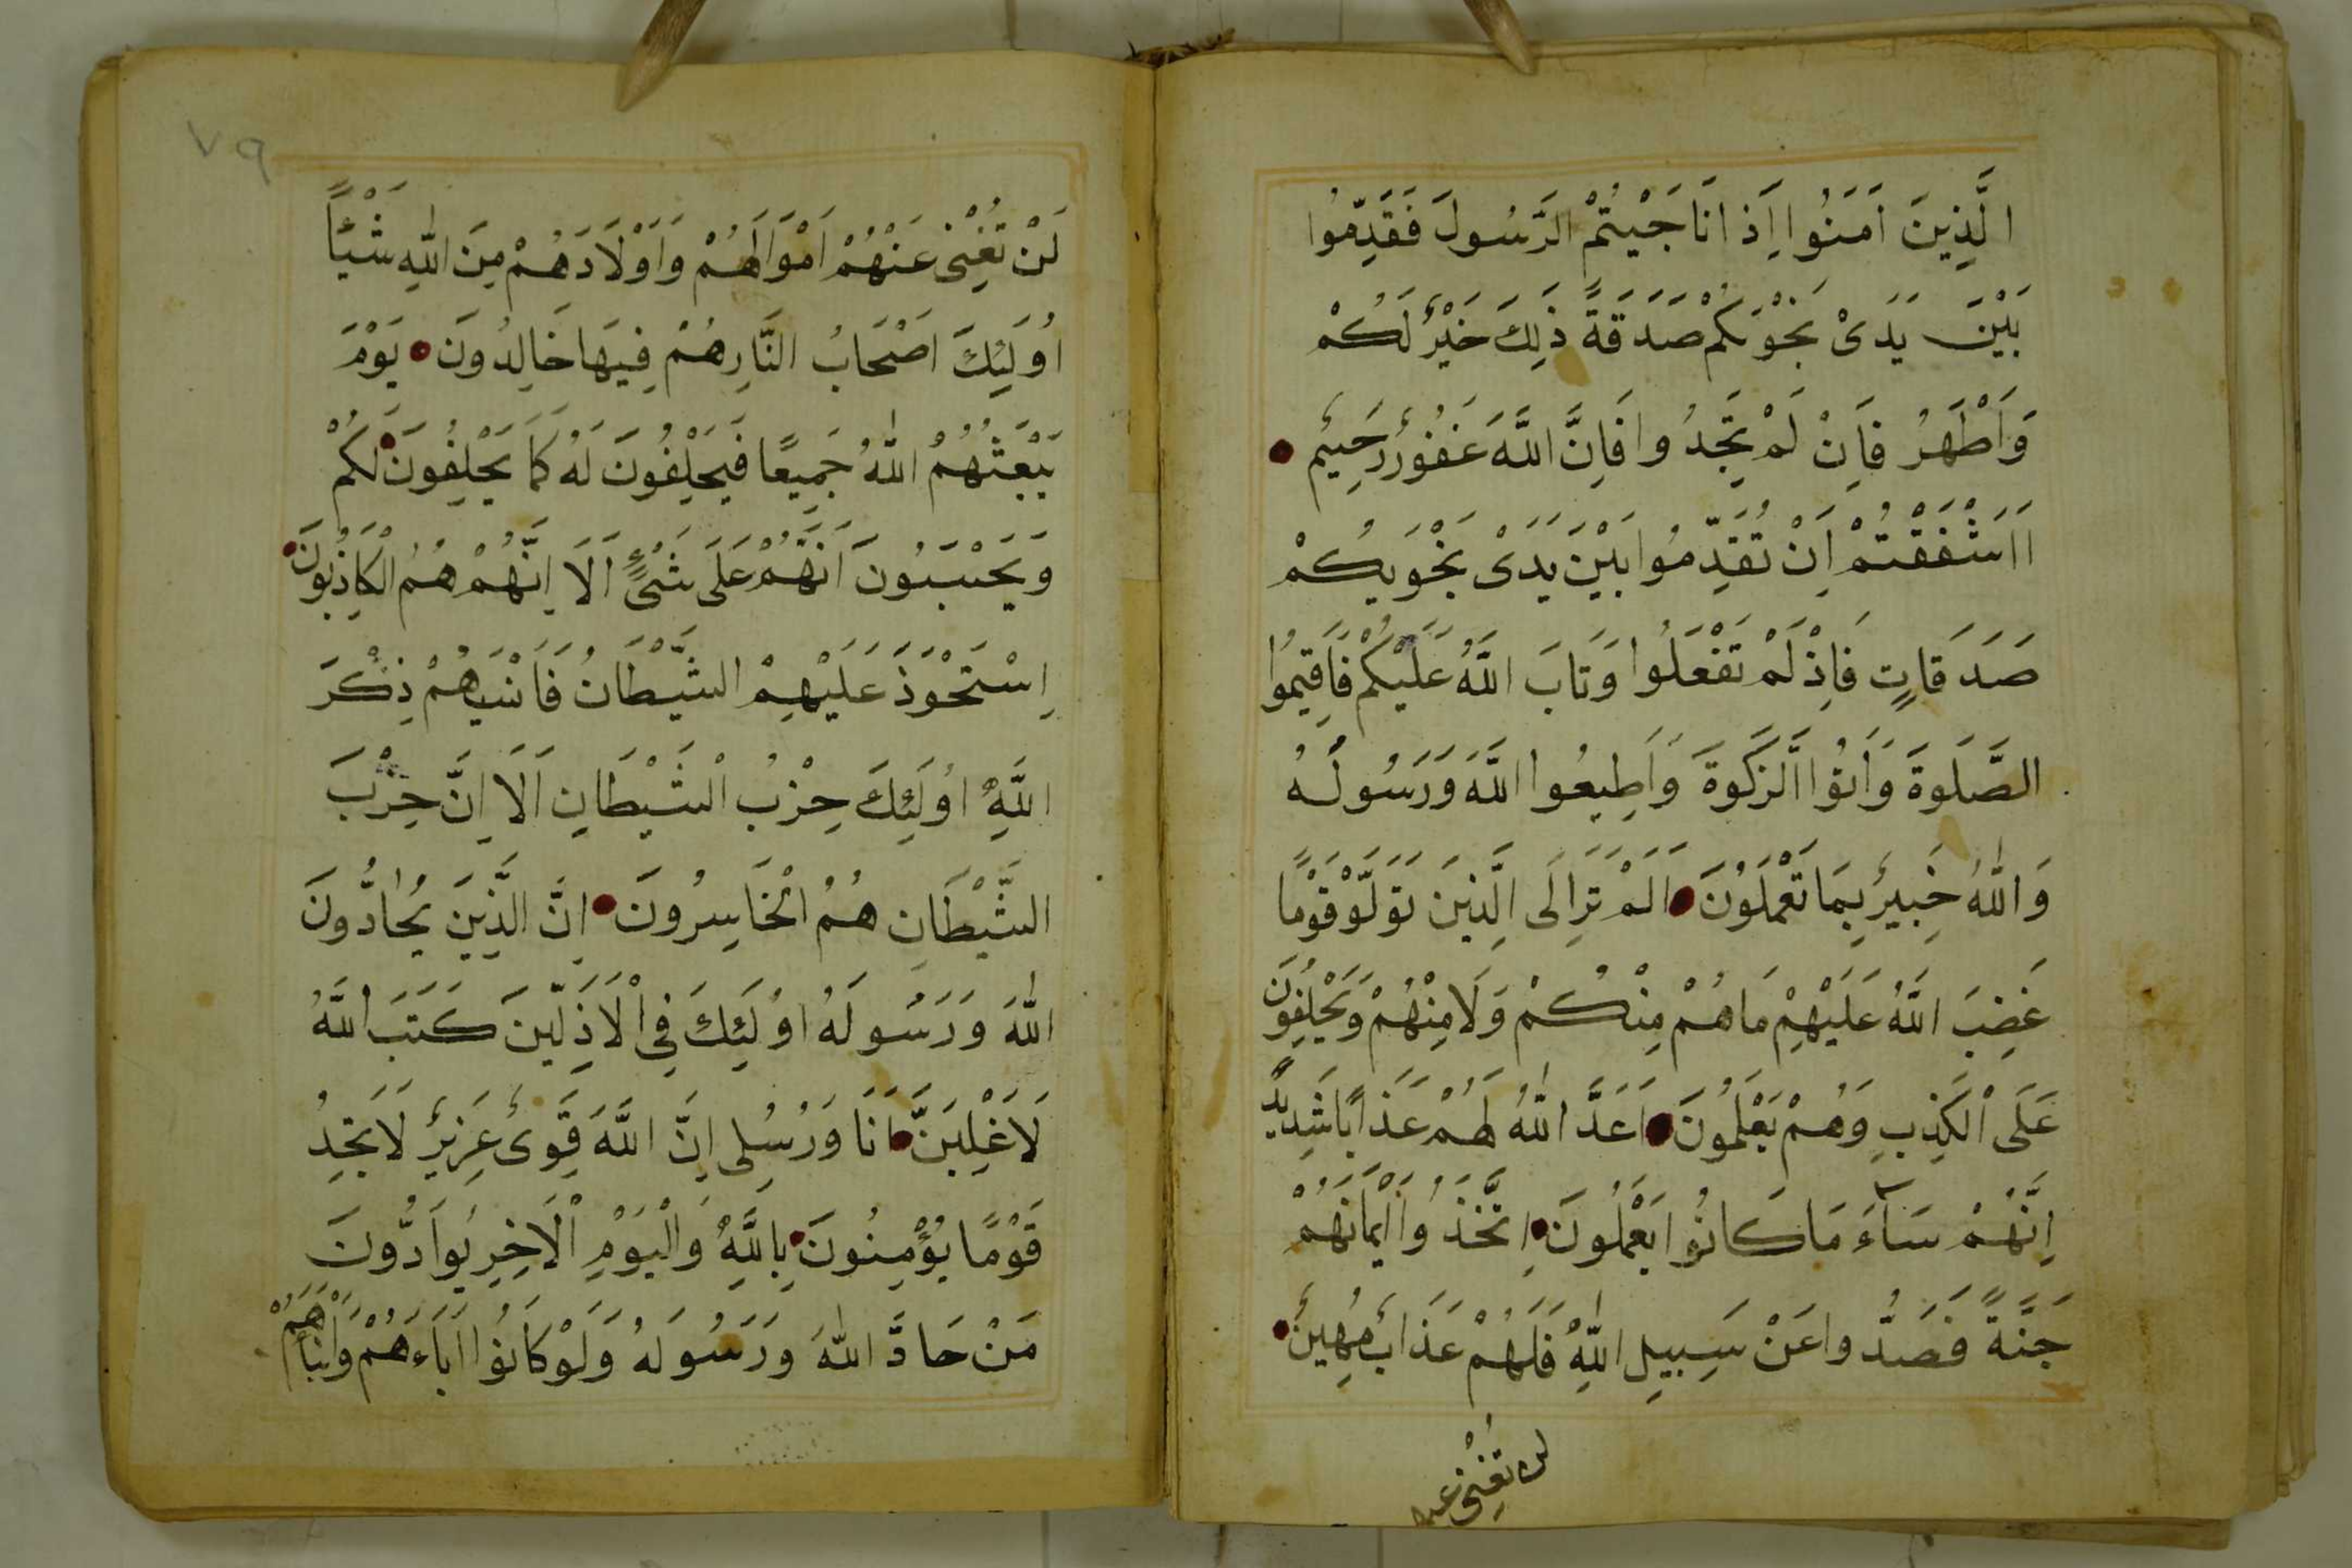 الَّذِينَ اٰمَنُوا اِذَا نَاجَيْتُمُ الرَّسُولَ فَقَدِّمُوا
بَيْنَ يَدَىْ نَجْوٰيكُمْ صَدَقَةً ذٰلِكَ خَيْرٌ لَكُمْ
وَاَطْهَرُ فَاِنْ لَمْ تَجِدُوا فَاِنَّ اللَّهَ غَفُورٌ رَحِيمٌ
ااَشْفَقْتُمْ اَنْ تُقَدِّمُوا بَيْنَ يَدَىْ نَجْوَيكُمْ
صَدَقَاتٍ فَاِذْ لَمْ تَفْعَلُوا وَتَابَ اللَّهُ عَلَيْكُمْ فَاَقِيمُوا
الصَّلَوةَ وَاٰتُوا الزَّكَوةَ وَاَطِيعُوا اللَّهَ وَرَسُولَهُ
وَاللّٰهُ خَبِيرٌ بِمَا تَعْمَلُونَ اَلَمْ تَرَ اِلَى الَّذِينَ تَوَلَّوْ قَوْمًا
غَضِبَ اللَّهُ عَلَيْهِمْ مَا هُمْ مِنْكُمْ وَلَا مِنْهُمْ وَيَحْلِفُونَ
عَلَى الْكَذِبِ وَهُمْ يَعْلَمُونَ اَعَدَّ اللّٰهُ لَهُمْ عَذَابًا شَدِيدًا
اِنَّهُمْ سَآءَ مَا كَانُوا يَعْمَلُونَ اِتَّخَذُوا اَيْمَانَهُمْ
جَنَّةً فَصَدُّوا عَنْ سَبِيلِ اللّٰهِ فَلَهُمْ عَذَابٌ مُهِينٌ
لن تُغْنِىَ عنهم
٧٩
لَنْ تُغْنِىَ عَنْهُمْ اَمْوَالُهُمْ وَاَوْلَادُهُمْ مِنَ اللّٰهِ شَيْئًا
اُولَئِكَ اَصْحَابُ النَّارِ هُمْ فِيهَا خَالِدُونَ يَوْمَ
يَبْعَثُهُمُ اللّٰهُ جَمِيعًا فَيَحْلِفُونَ لَهُ كَمَا يَحْلِفُونَ لَكُمْ
وَيَحْسَبُونَ اَنَّهُمْ عَلَى شَىْءٍ اَلَا اِنَّهُمْ هُمُ الْكَاذِبُونَ
اِسْتَحْوَذَ عَلَيْهِمُ الشَّيْطَانُ فَاَنْسَيهُمْ ذِكْرَ
اللَّهِ اُولَئِكَ حِزْبُ الشَّيْطَانِ اَلَا اِنَّ حِزْبَ
الشَّيْطَانِ هُمُ الْخَاسِرُونَ اِنَّ الَّذِينَ يُحَادُّونَ
اللّٰهَ وَرَسُولَهُ اُولَئِكَ فِى الْاَذَلِّينَ كَتَبَ اللَّهُ
لَاَغْلِبَنَّ اَنَا وَرُسُلِى اِنَّ اللَّهَ قَوِىٌّ عَزِيزٌ لَا تَجِدُ
قَوْمًا يُؤْمِنُونَ بِاللَّهِ وَالْيَوْمِ الْاٰخِرِ يُوَادُّونَ
مَنْ حَادَّ اللّٰهَ وَرَسُولَهُ وَلَوْ كَانُوا اٰبَاءَهُمْ وَاَبْنَاءَهُمْ